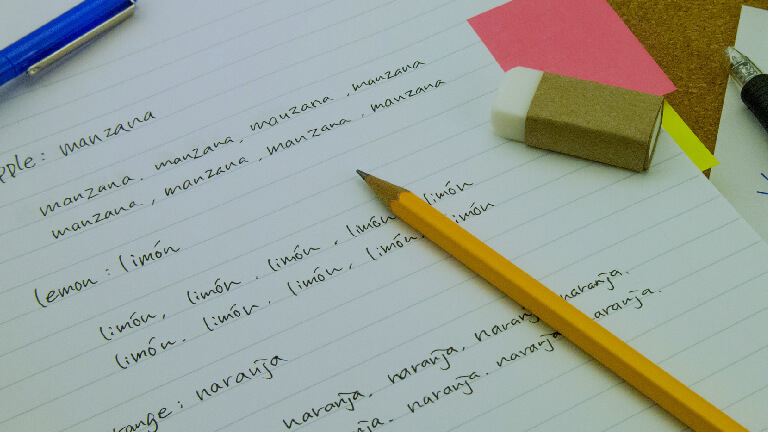 pple: manzana
manzana, manzana, manzana, manzana
manzana, manzana, manzana, manzana, manzana
lemon: limón
limón, limón, limón, limón, limón
limón, limón, limón, limón, limón
range: naranja
naranja, naranja, naranja, naranja,
naranja, naranja, naranja.